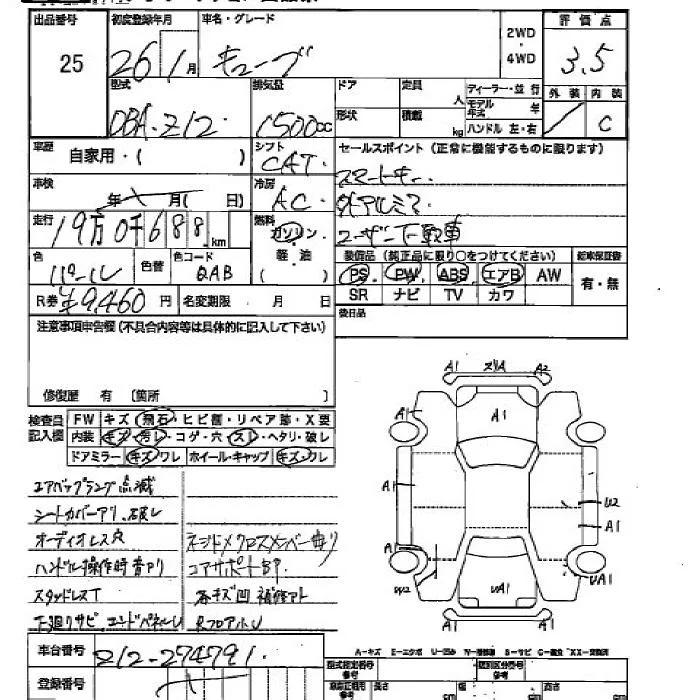 出品番号 初度登録年月 車名・グレード 2WD・4WD 評価点
25 26 1月 キューブ 3.5
型式 排気量 ドア 定員 人 ディーラー・並行 外装 内装
DBA-Z12 1500cc 形状 積載 kg モデル年式 年 ハンドル 左・右 C
車歴 自家用・( ) シフト CAT セールスポイント (正常に機能するものに限ります)
スマートキー
車検 年 月( 日) 冷房 AC 外アルミ
走行 19万0千688km 燃料 ガソリン・軽油( ) ユーザー下取車
色 パール 色替 色コード QAB 装備品 (純正品に限り○をつけてください) 新車保証書
PS PW ABS エアB AW 有・無
R券 ¥9,460円 名変期限 月 日 SR ナビ TV カワ
注意事項申告欄 (不具合内容等は具体的に記入して下さい) 後日品
修復歴 有 〔箇所 〕
検査員記入欄 FW キズ・飛石・ヒビ割・リペア跡・X要
内装 キズ・汚レ・コゲ・穴・スレ・ヘタリ・破レ
ドアミラー キズ・ワレ ホイール・キャップ キズ・ワレ
エアバッグランプ点滅
シートカバーアリ、破レ
オーディオレス穴 ネジトメクロスメンバー曲り
ハンドル操作時音アリ コアサポートSP
スタッドレスT 各キズ凹 補修アト
下廻りサビ エンドパネルU RフロアハトU
A1 ズリA A2
A1 A1
A1 U2
A1
A1
W2 UA1 UA1
A1
車台番号 Z12-274791
登録番号
A-キズ E-エクボ U-凹み W-補修跡 S-サビ C-腐食 XX-交換済
型式指定番号 参考 類別区分番号 参考
長さ cm 幅 cm 高さ cm